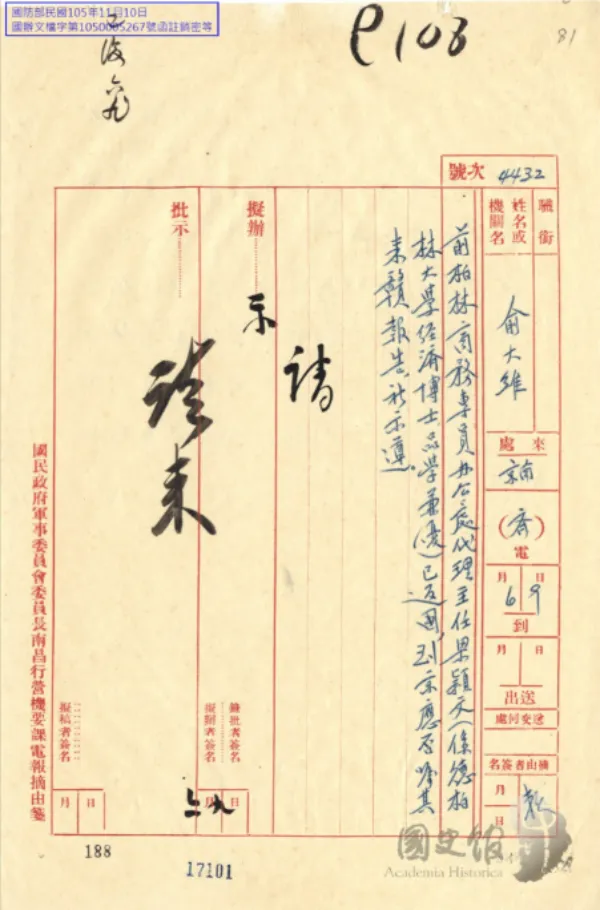 國防部民國105年11月10日
國辦文檔字第1050005267號函註銷密等
81
號次 4432
職銜
姓名或機關名
俞大維
來處
(齊)電
6月9日到
月 日送出
遞變何處
摘由者簽名
月 日
前柏林商務專員辦公處代理主任梁穎文(係德柏
林大學經濟博士品學兼優)已返國到京應否囑其
來贛報告祈示遵
擬辦
請
示
批示
請來
簽批者簽名
擬辦者簽名
月 日
六九
擬稿者簽名
月 日
國民政府軍事委員會委員長南昌行營機要課電報摘由箋
188
17101
國史館
Academia Historica